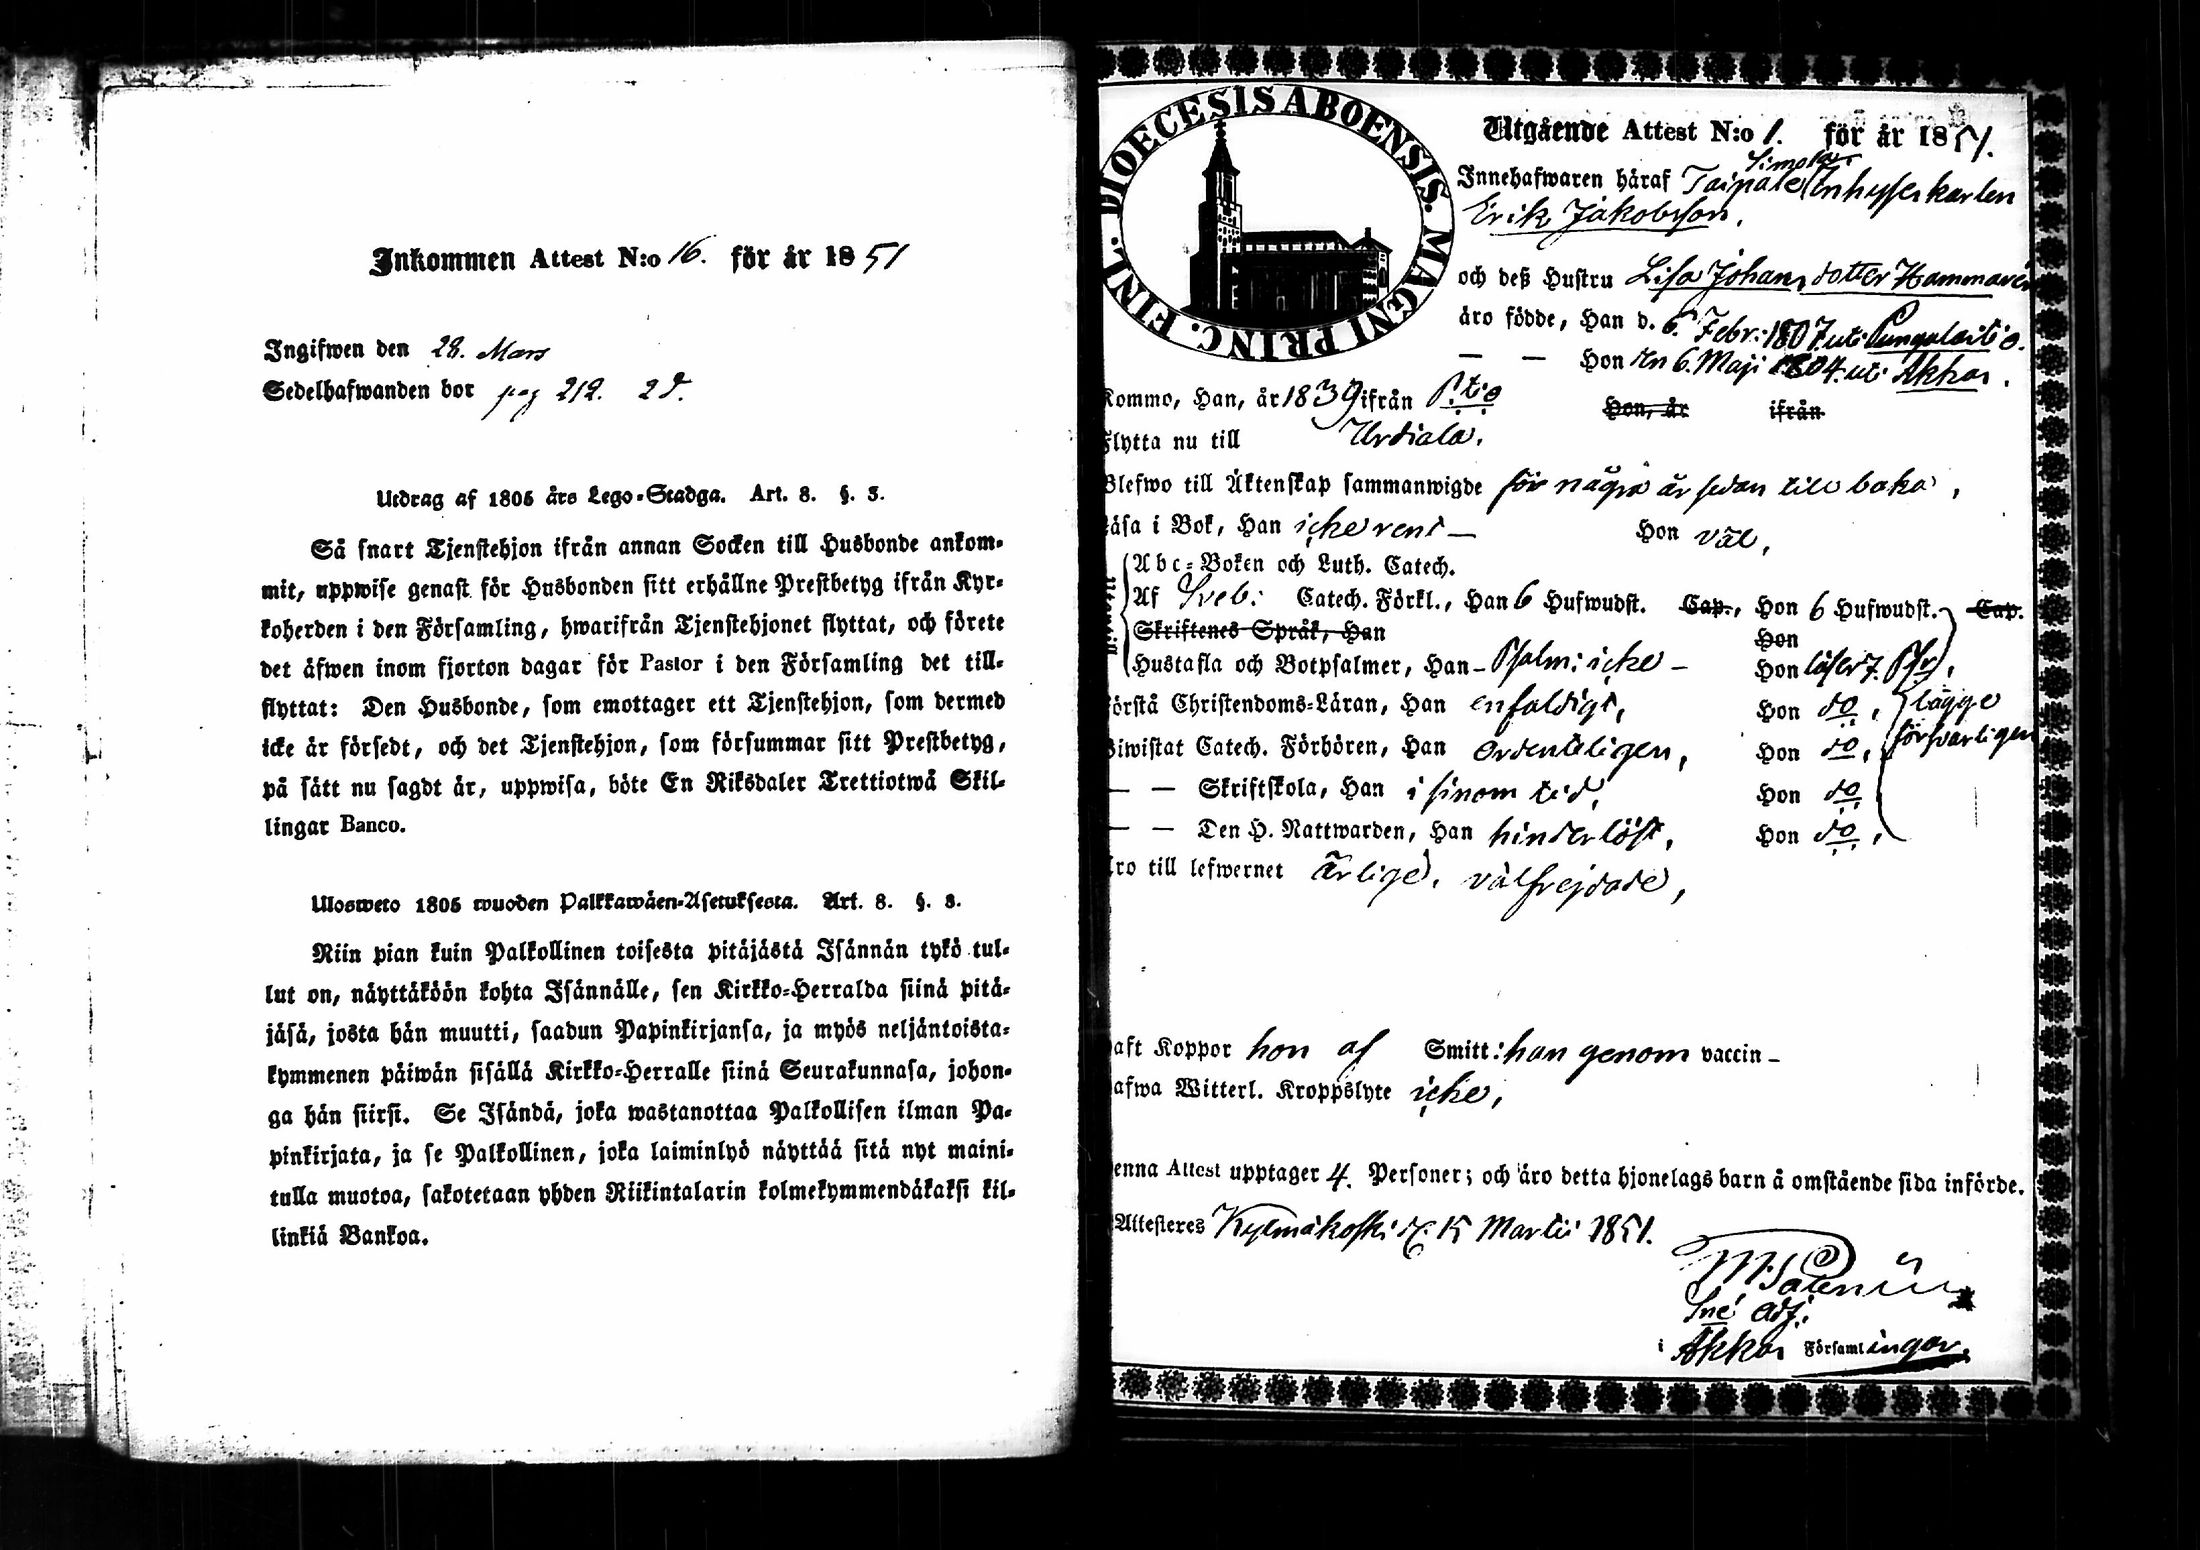 Inkommen Attest N:o 16. för år 1851
Ingifwen den 28. Mars
Sedelhafwanden bor pag 212. 2 d.
Utdrag af 1805 års Lego-Stadga. Art. 8. §. 3.
Så snart Tjenstehjon ifrån annan Socken till Husbonde ankom-
mit, uppwise genast för Husbonden sitt erhållne Prestbetyg ifrån Kyr-
koherden i den Församling, hwarifrån Tjenstehjonet flyttat, och förete
det äfwen inom fjorton dagar för Pastor i den Församling det till-
flyttat: Den Husbonde, som emottager ett Tjenstehjon, som dermed
icke är försedt, och det Tjenstehjon, som försummar sitt Prestbetyg,
på sätt nu sagdt är, uppwisa, böte En Riksdaler Trettiotwå Skil-
lingar Banco.
Ulosweto 1805 wuoden Palkkawäen-Asetuksesta. Art. 8. §. 3.
Niin pian kuin Palkollinen toisesta pitäjästä Isännän tykö tul-
lut on, näyttäköön kohta Isännälle, sen Kirkko-Herralda siinä pitä-
jäsä, josta hän muutti, saadun Papinkirjansa, ja myös neljäntoista-
kymmenen päiwän sisällä Kirkko-Herralle siinä Seurakunnasa, johon-
ga hän siirsi. Se Isändä, joka wastanottaa Palkollisen ilman Pa-
pinkirjata, ja se Palkollinen, joka laiminlyö näyttää sitä nyt maini-
tulla muotoa, sakotetaan yhden Riikintalarin kolmekymmendäkaksi kil-
linkiä Bankoa.
DIOECESIS ABOENSIS. MAGNI PRINC. FINL.
Utgående Attest N:o 1. för år 1851.
Simola
Innehafwaren häraf Taipale Inhysekarlen
Erik Jakobsson,
och deß Hustru Lisa Johansdotter Hammarén
äro födde, Han d. 6 Febr: 1807. uti Pungalaitio.
— — Hon den 6. Maji 1804. uti Akkas.
Kommo, Han, år 1839 ifrån P:tio Hon, år ifrån
Flytta nu till Urdiala.
Blefwo till Äktenskap sammanwigde för några år sedan till baka,
Läsa i Bok, Han icke rent — Hon väl,
Abc-Boken och Luth. Catech.
Af Sveb: Catech. Förkl., Han 6 Hufwudst. Cap., Hon 6 Hufwudst. Cap.
Skriftenes Språk, Han Hon
Hustafla och Botpsalmer, Han – Psalm: icke – Hon läser 7. Ps,
örstå Christendoms-Läran, Han enfaldigt, Hon do,
lägge
försvarligen
Biwistat Catech. Förhören, Han ordenteligen, Hon do,
— — Skriftskola, Han i sinom tid, Hon do
— — Den H. Nattwarden, Han hinderlöst, Hon do,
ro till lefwernet ärlige, välfrejdade,
aft Koppor hon af Smitt: han genom vaccin –
afwa Witterl. Kroppslyte icke,
enna Attest upptager 4. Personer; och äro detta hjonelags barn å omstående sida införde.
Attesteres Kylmäkoski d. 15 Martii 1851.
adj.
i Akkas Församlingar.